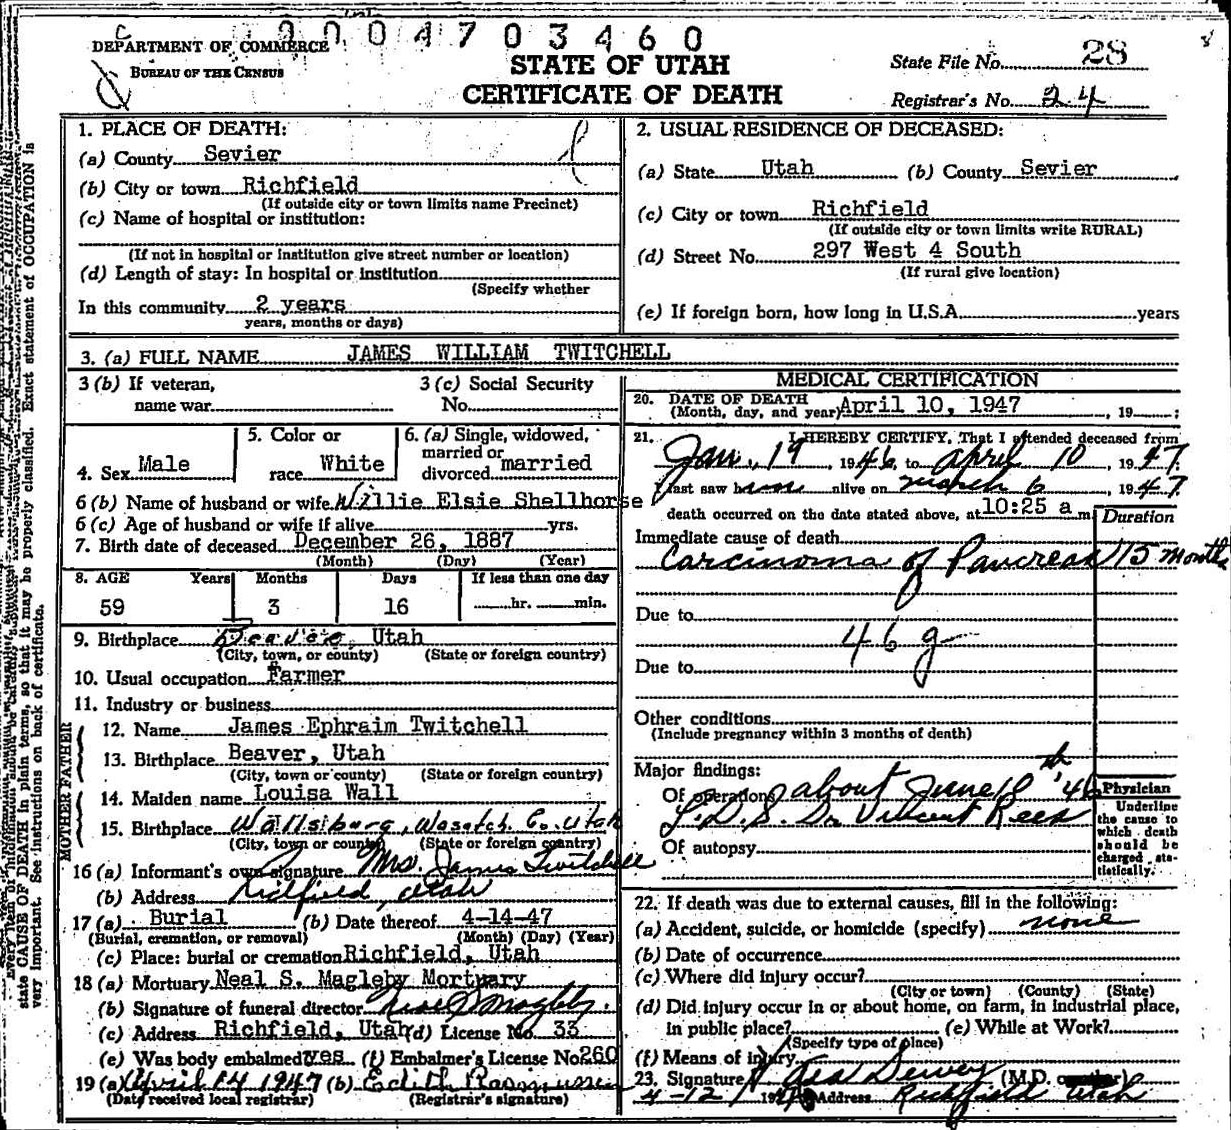 0004703460
DEPARTMENT OF COMMERCE
BUREAU OF THE CENSUS
STATE OF UTAH
CERTIFICATE OF DEATH
State File No. 28
Registrar's No. 24
1. PLACE OF DEATH:
(a) County Sevier
(b) City or town Richfield
(If outside city or town limits name Precinct)
(c) Name of hospital or institution:
(If not in hospital or institution give street number or location)
(d) Length of stay: In hospital or institution
(Specify whether
In this community 2 years
years, months or days)
2. USUAL RESIDENCE OF DECEASED:
(a) State Utah (b) County Sevier
(c) City or town Richfield
(If outside city or town limits write RURAL)
(d) Street No. 297 West 4 South
(If rural give location)
(e) If foreign born, how long in U.S.A. years
3. (a) FULL NAME JAMES WILLIAM TWITCHELL
3 (b) If veteran,
name war
3 (c) Social Security
No.
4. Sex Male
5. Color or
race White
6. (a) Single, widowed,
married or
divorced married
6 (b) Name of husband or wife Willie Elsie Shellhorse
6 (c) Age of husband or wife if alive yrs.
7. Birth date of deceased December 26, 1887
(Month) (Day) (Year)
8. AGE Years Months Days If less than one day
59 3 16 hr. min.
9. Birthplace Beaver, Utah
(City, town, or county) (State or foreign country)
10. Usual occupation Farmer
11. Industry or business
FATHER
12. Name James Ephraim Twitchell
13. Birthplace Beaver, Utah
(City, town or county) (State or foreign country)
MOTHER
14. Maiden name Louisa Wall
15. Birthplace Wallsburg, Wasatch Co. Utah
(City, town or county) (State or foreign country)
16 (a) Informant's own signature Mrs. James Twitchell
(b) Address Richfield, Utah
17 (a) Burial (b) Date thereof 4-14-47
(Burial, cremation, or removal) (Month) (Day) (Year)
(c) Place: burial or cremation Richfield, Utah
18 (a) Mortuary Neal S. Magleby Mortuary
(b) Signature of funeral director Neal S Magleby
(c) Address Richfield, Utah (d) License No. 33
(e) Was body embalmed? yes (f) Embalmer's License No. 260
19 (a) April 14 1947 (b) Edith Rasmussen
(Date received local registrar) (Registrar's signature)
MEDICAL CERTIFICATION
20. DATE OF DEATH
(Month, day, and year) April 10, 1947, 19 ;
21. I HEREBY CERTIFY, That I attended deceased from
Jan. 19, 1946, to April 10, 1947.
I last saw him alive on March 6, 1947
death occurred on the date stated above, at 10:25 a m.
Duration
Immediate cause of death
Carcinoma of Pancreas 15 months
Due to
46 g
Due to
Other conditions
(Include pregnancy within 3 months of death)
Major findings:
Of operation about June 10th '46
L.D.S. Dr Vincent Rees
Of autopsy
Physician
Underline
the cause to
which death
should be
charged sta-
tistically.
22. If death was due to external causes, fill in the following:
(a) Accident, suicide, or homicide (specify) none
(b) Date of occurrence
(c) Where did injury occur?
(City or town) (County) (State)
(d) Did injury occur in or about home, on farm, in industrial place,
in public place? (e) While at Work?
(Specify type of place)
(f) Means of injury
23. Signature Dewey (M.D.
4-12 1947 Address Richfield Utah
state CAUSE OF DEATH in plain terms, so that it may be properly classified. Exact statement of OCCUPATION is
very important. See instructions on back of certificate.